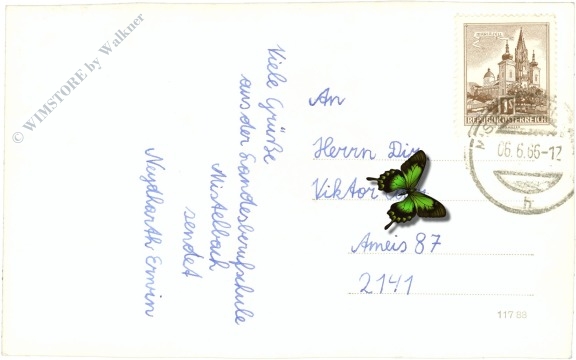 © WIMSTORE by Walkner
Viele Grüße
aus der Landesberufschule
Mistelbach
sendet
Neydharth Erwin
An
Herrn Dir
Viktor
Ameis 87
2141
REPUBLIK ÖSTERREICH
06.6.66-12
h
117 88